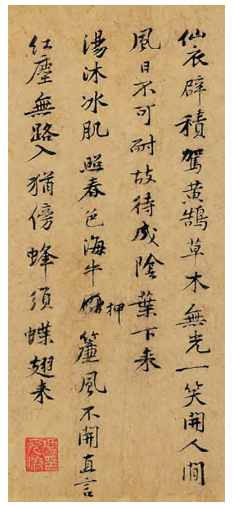 仙衣辟積駕黄鵠草木無光一笑開人間
風日不可耐故待成陰葉下来
湯沐冰肌照春色海牛押簾風不開直言
紅塵無路入猶傍蜂須蝶翅来